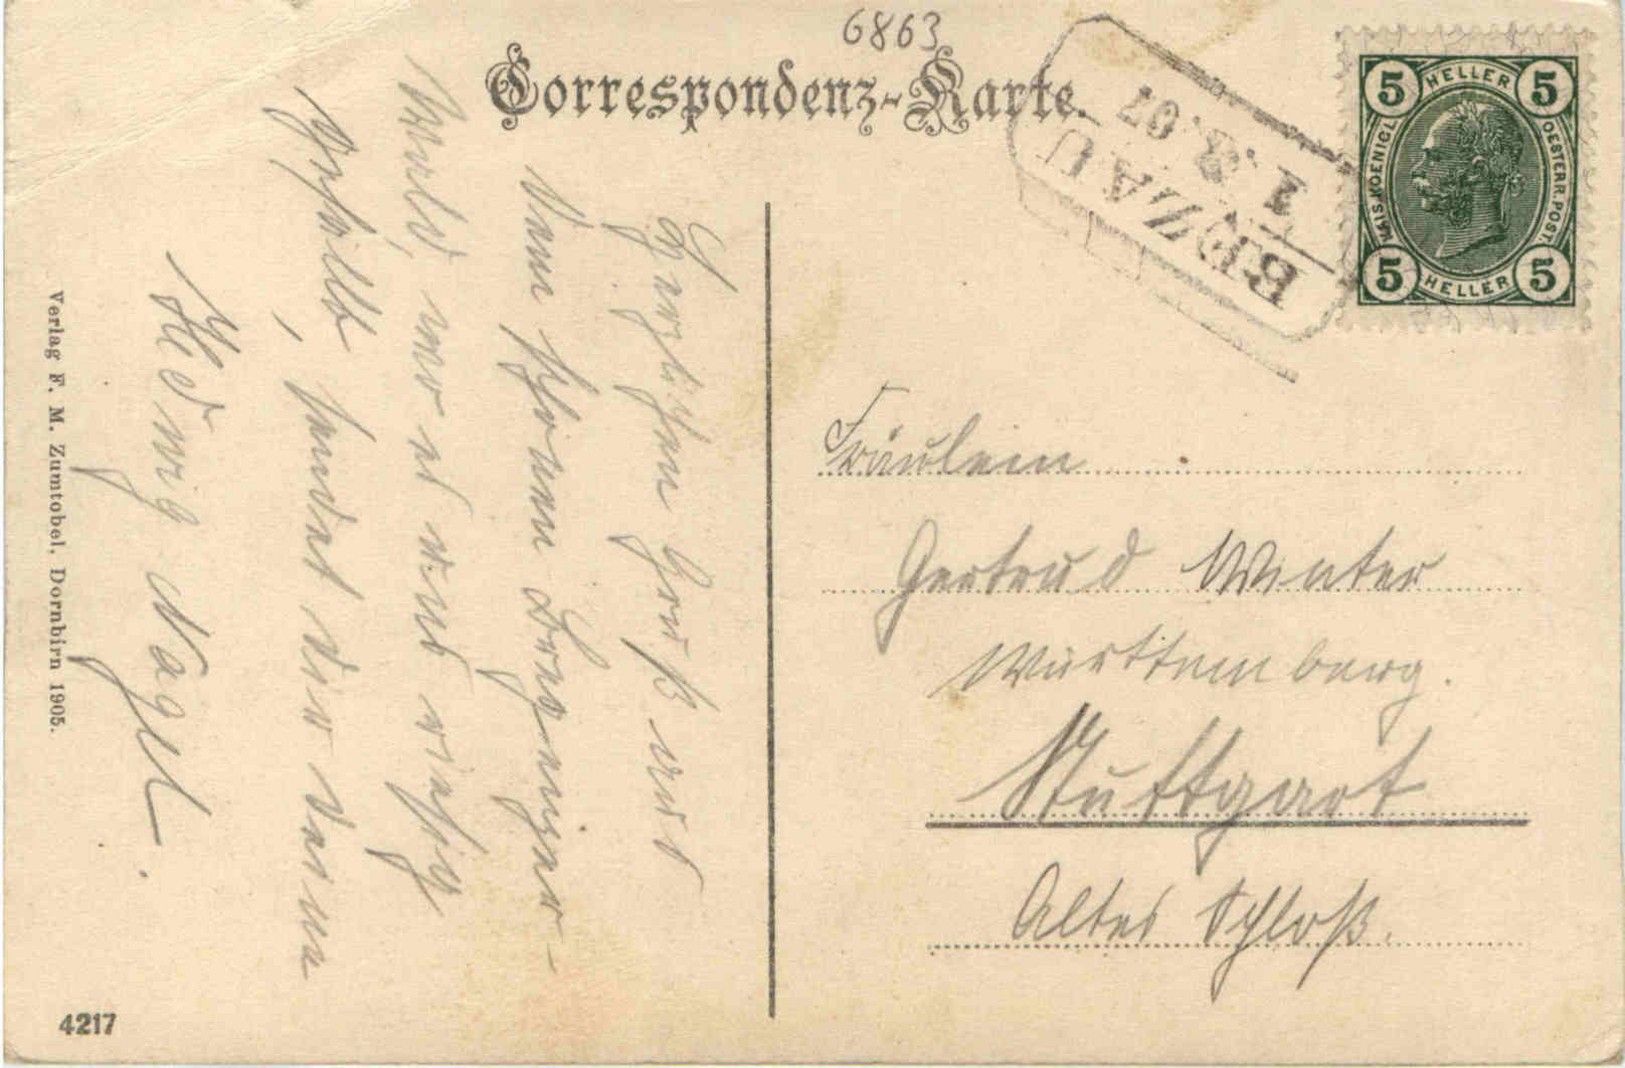 6863
Correspondenz-Karte.
5 HELLER 5
KAIS. KOENIGL. OESTERR. POST.
5 HELLER 5
BEZAU
1 8 07
Herzlichen Gruß aus
dem schönen Bregenzer-
wald, wo es uns riesig
gefällt, sendet Dir Deine
Hedwig Nagel.
Fräulein
Gertrud Winter
Württemberg.
Stuttgart
Altes Schloß.
Verlag F. M. Zumtobel, Dornbirn 1905.
4217